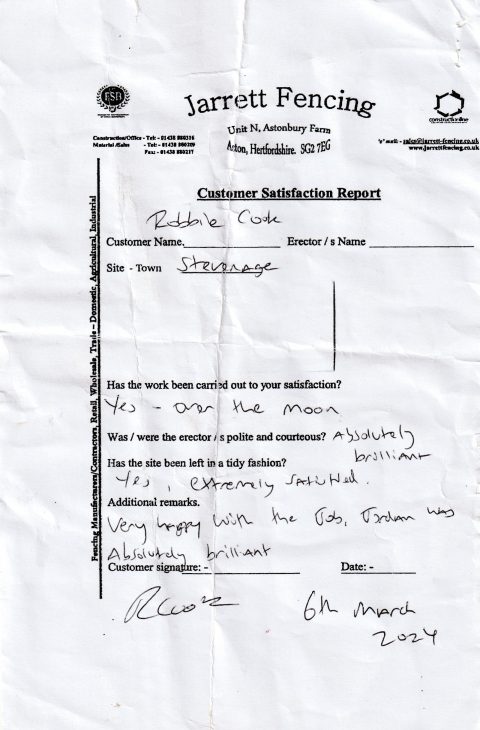 FSB
Jarrett Fencing
Unit N, Astonbury Farm
Aston, Hertfordshire. SG2 7EG
Construction/Office - Tel: - 01438 880316
Material /Sales - Tel: - 01438 880209
Fax: - 01438 880217
constructionline
"e" mail: - sales@jarrett-fencing.co.uk
www.jarrettfencing.co.uk
Fencing Manufacturers/Contractors, Retail, Wholesale, Trade – Domestic, Agricultural, Industrial
Customer Satisfaction Report
Robbie Cook
Customer Name. Erector / s Name
Site - Town Stevenage
Has the work been carried out to your satisfaction?
Yes - over the moon
Was / were the erector / s polite and courteous? Absolutely
brilliant
Has the site been left in a tidy fashion?
Yes, extremely satisfied.
Additional remarks.
Very happy with the Job, Jordan was
Absolutely brilliant
Customer signature: - Date: -
RCook 6th March
2024